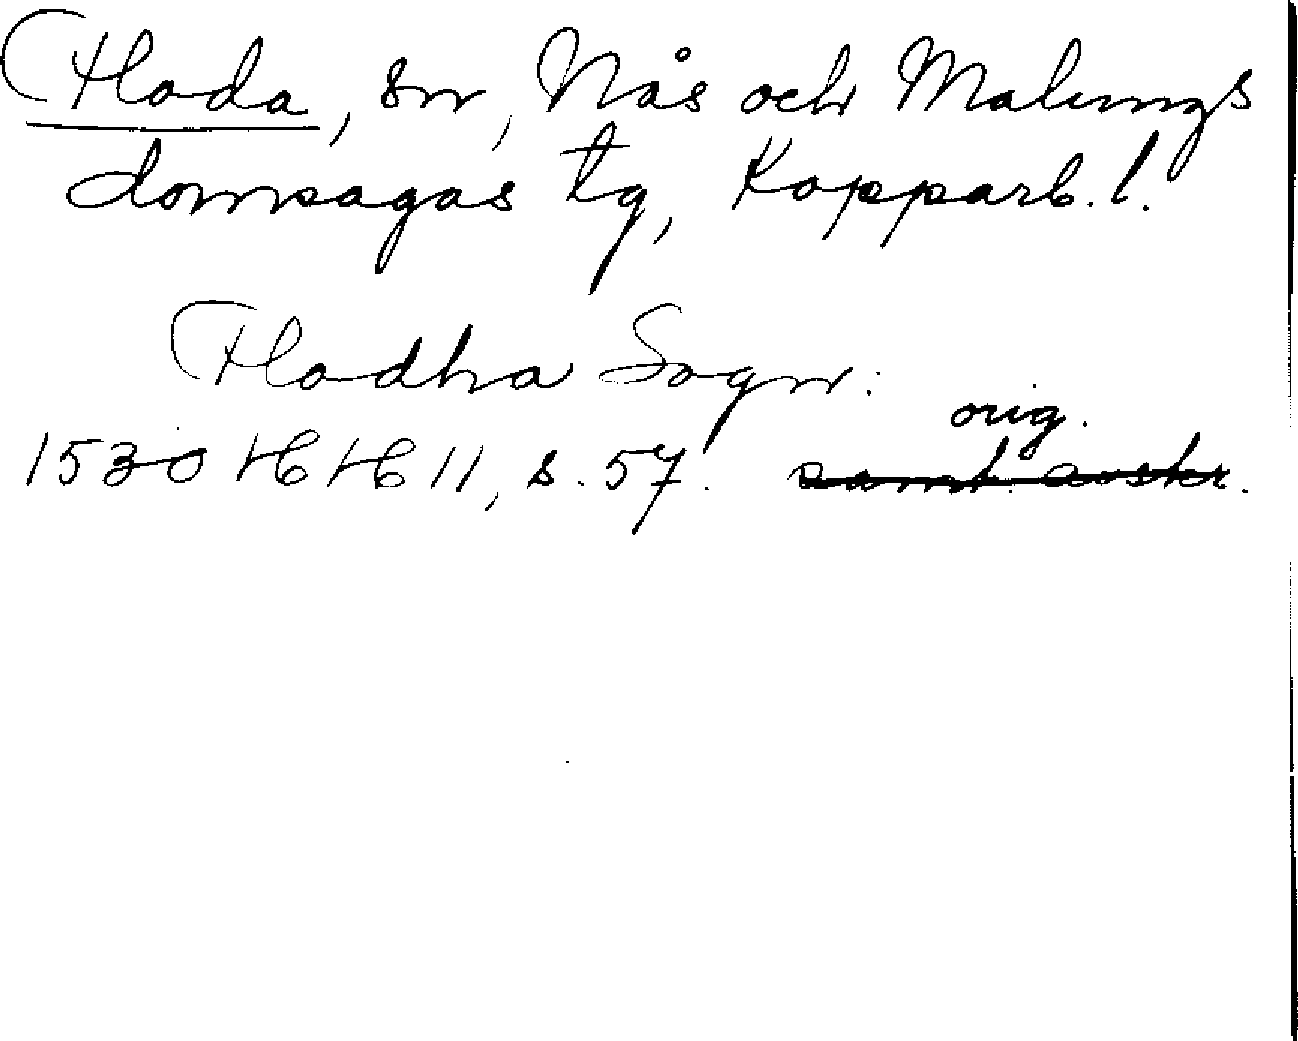 Floda, sn, Nås och Malungs
domsagas tg, Kopparb. l.
Flodha Sogn:
orig.
1530 HH 11, s. 57. samt. avskr.